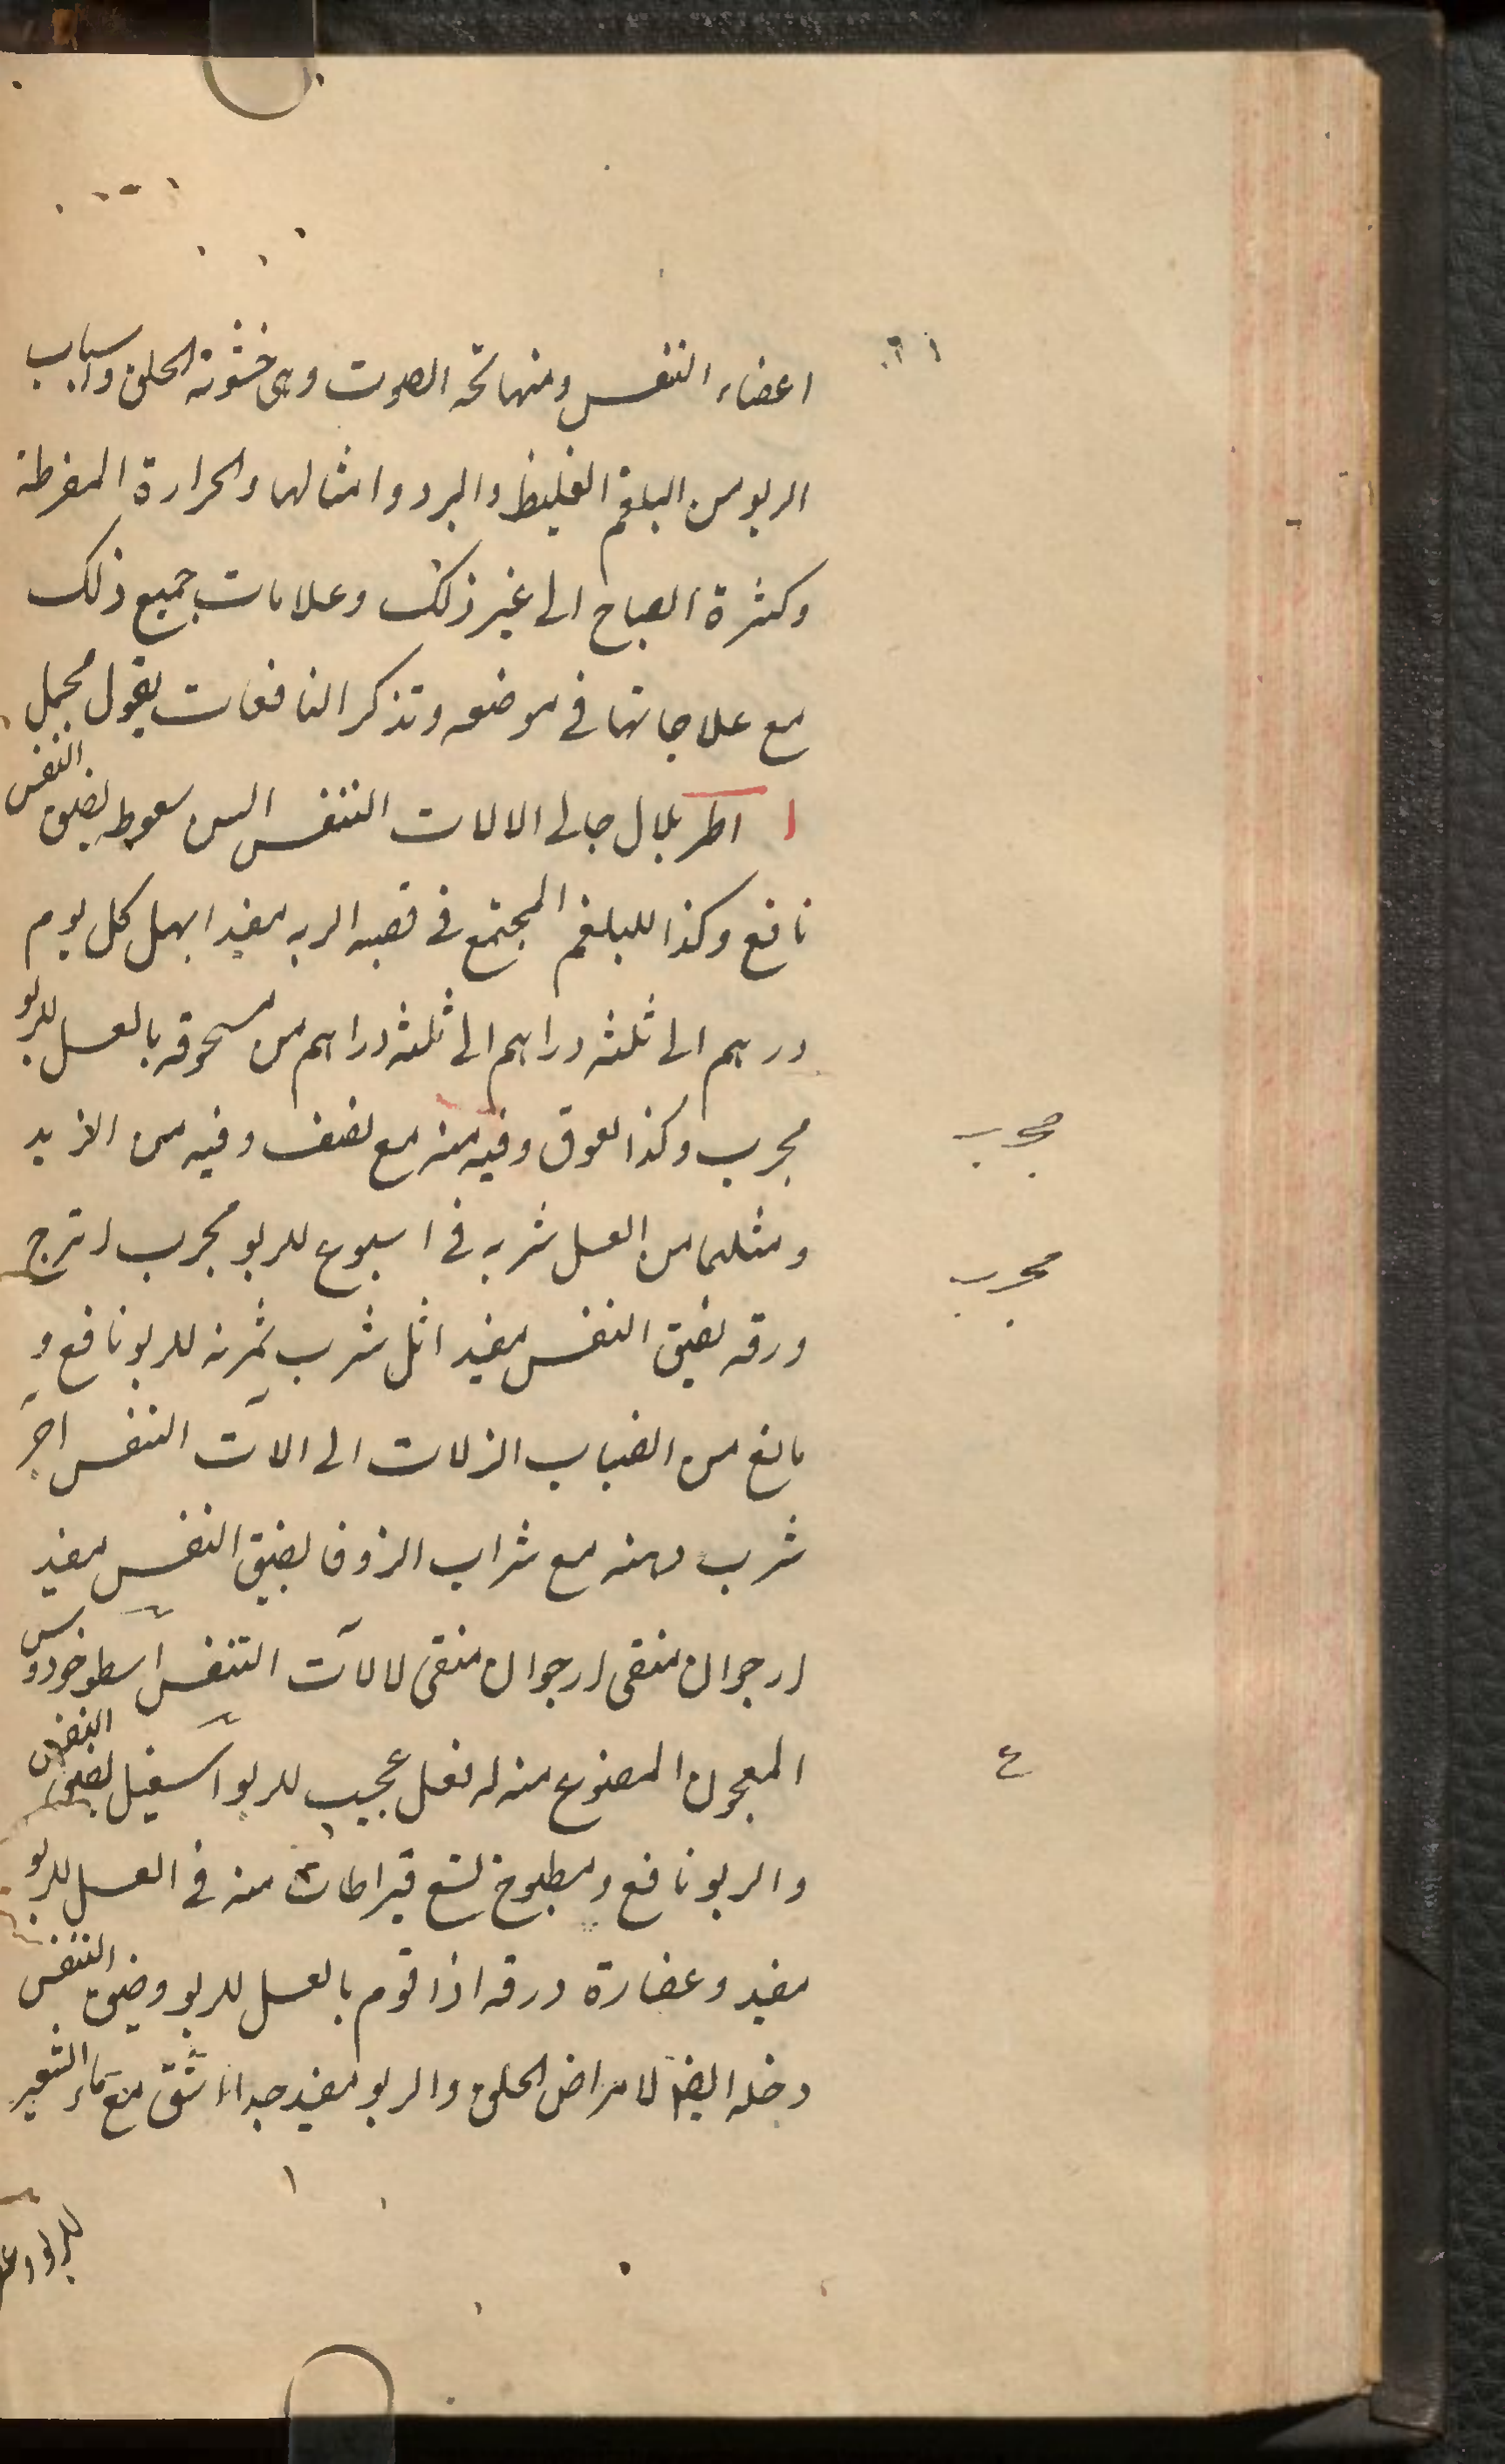 اعضاء التنفس ومنها بحة الصوت وهى خشونة الحلق واسباب
الربو من البلغم الغليظ والبرد وامثالهما والحرارة المفرطة
وكثرة الصياح الى غير ذلك وعلامات جميع ذلك
مع علاجاتها فى موضعه وتذكر النافعات بقول مجمل
ا اطريلال جالى الالات التنفس سعوط لضيق النفس
نافع وكذا للبلغم المجتمع فى قصبه الريه مفيد ابهل كل يوم
درهم الى ثلثه دراهم الى ثلثه دراهم من مسحوقه بالعسل للربو
مجرب وكذا لعوق وقيه منه مع نصف وقيه من الزبد
مجرب
ومثلهما من العسل شربه فى اسبوع للربو مجرب اترج
مجرب
ورقه لضيق النفس مفيد اثل شرب ثمرته للربو نافع و
مانع من انصباب النزلات الى الات التنفس اجر
شرب دهنه مع شراب الزوفا لضيق النفس مفيد
ارجوان منقى ارجوان منقى لالات التنفس اسطوخودوس
المعجون المصنوع منه له فعل عجيب للربو اسقيل لضيق النفس
ع
والربو نافع ومطبوخ تسع قيراطات منه فى العسل للربو
مفيد وعصارة ورقه اذا قوم بالعسل للربو وضيق التنفس
وخله ايضا لامراض الحلق والربو مفيد جدا اشق مع ماء الشعير